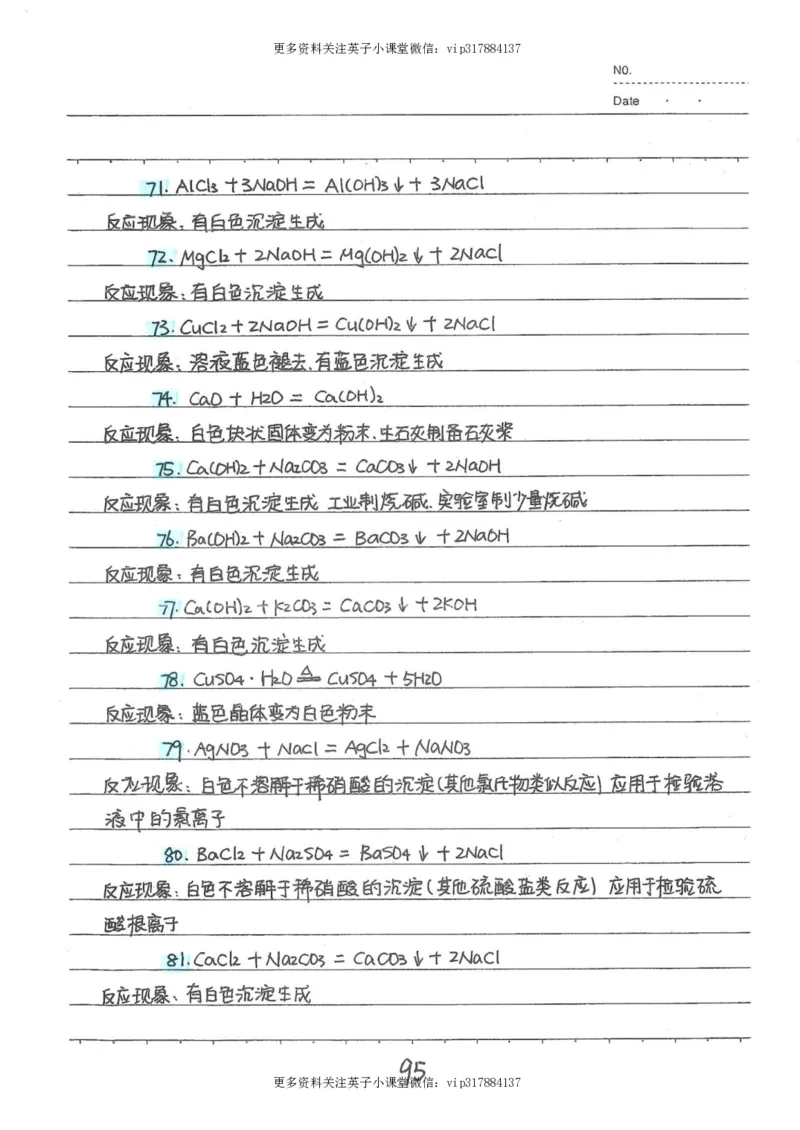 更多资料关注英子小课堂微信：vip317884137
NO.
Date · ·
71. AlCl3 +3NaOH = Al(OH)3↓+ 3NaCl
反应现象：有白色沉淀生成
72. MgCl2 + 2NaOH = Mg(OH)2↓+ 2NaCl
反应现象：有白色沉淀生成
73. CuCl2+2NaOH = Cu(OH)2↓+ 2NaCl
反应现象：溶液蓝色褪去、有蓝色沉淀生成
74. CaO + H2O = Ca(OH)2
反应现象：白色块状固体变为粉末、生石灰制备石灰浆
75. Ca(OH)2+Na2CO3 = CaCO3↓ +2NaOH
反应现象：有白色沉淀生成 工业制烧碱、实验室制少量烧碱
76. Ba(OH)2+Na2CO3 = BaCO3↓ +2NaOH
反应现象：有白色沉淀生成
77. Ca(OH)2+K2CO3 = CaCO3↓ +2KOH
反应现象：有白色沉淀生成
78. CuSO4·H2O ≜ CuSO4 + 5H2O
反应现象：蓝色晶体变为白色粉末
79. AgNO3 + NaCl = AgCl2 + NaNO3
反应现象：白色不溶解于稀硝酸的沉淀(其他氯化物类似反应) 应用于检验溶
液中的氯离子
80. BaCl2 +Na2SO4 = BaSO4↓ +2NaCl
反应现象：白色不溶解于稀硝酸的沉淀(其他硫酸盐类反应) 应用于检验硫
酸根离子
81. CaCl2 +Na2CO3 = CaCO3↓+ 2NaCl
反应现象、有白色沉淀生成
95
更多资料关注英子小课堂微信：vip317884137